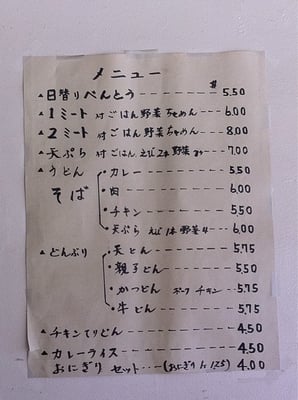 メニュー
$
▲日替りべんとう --- 5.50
▲1ミート 付ごはん野菜ちゃめん --- 6.00
▲2ミート 付ごはん野菜ちゃめん --- 8.00
▲天ぷら 付ごはん、えび2本 野菜 --- 7.00
▲うどん ・カレー --- 5.50
そば ・肉 --- 6.00
・チキン --- 5.50
・天ぷら えび1本 野菜4 -- 6.00
▲どんぶり ・天どん --- 5.75
・親子どん --- 5.50
・かつどん ポーク チキン -- 5.75
・牛どん --- 5.75
▲チキンてりどん --- 4.50
▲カレーライス --- 4.50
おにぎりセット --- (おにぎり 1ヶ 1.25) 4.00